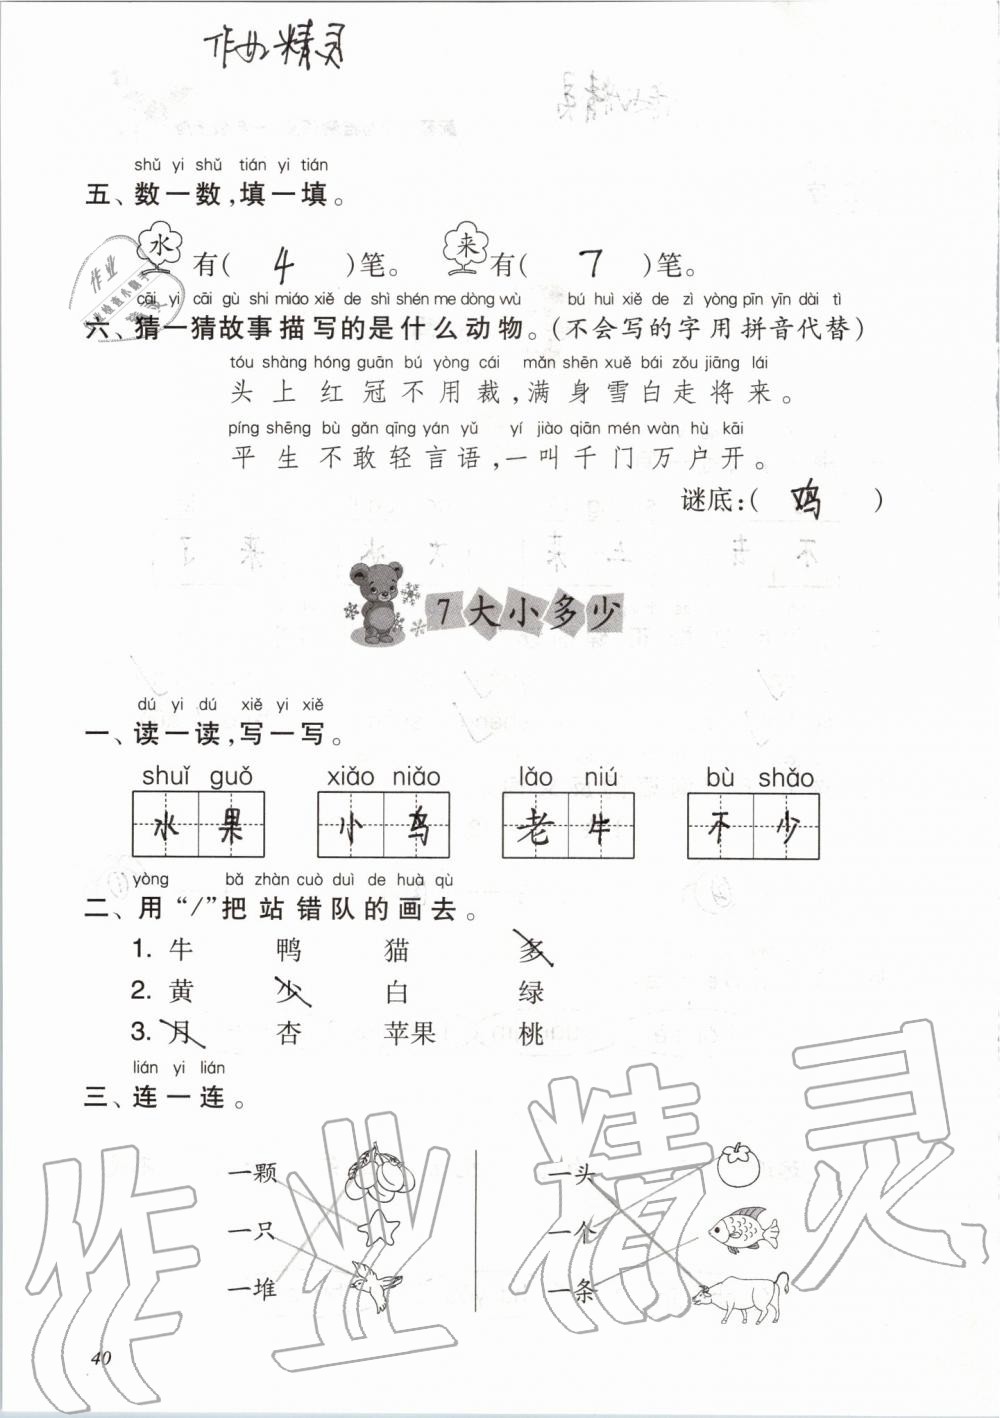 作业精灵
shǔ yi shǔ tián yi tián
五、数一数,填一填。
水 有( 4 )笔。 来 有( 7 )笔。
cāi yi cāi gù shi miáo xiě de shì shén me dòng wù bú huì xiě de zì yòng pīn yīn dài tì
六、猜一猜故事描写的是什么动物。(不会写的字用拼音代替)
tóu shàng hóng guān bú yòng cái mǎn shēn xuě bái zǒu jiāng lái
头上红冠不用裁,满身雪白走将来。
píng shēng bù gǎn qīng yán yǔ yí jiào qiān mén wàn hù kāi
平生不敢轻言语,一叫千门万户开。
谜底:( 鸡 )
7 大小多少
dú yi dú xiě yi xiě
一、读一读,写一写。
shuǐ guǒ xiǎo niǎo lǎo niú bù shǎo
水果 小鸟 老牛 不少
yòng bǎ zhàn cuò duì de huà qù
二、用“/”把站错队的画去。
1. 牛 鸭 猫 多
2. 黄 少 白 绿
3. 月 杏 苹果 桃
lián yi lián
三、连一连。
一颗 一头
一只 一个
一堆 一条
作业精灵
40